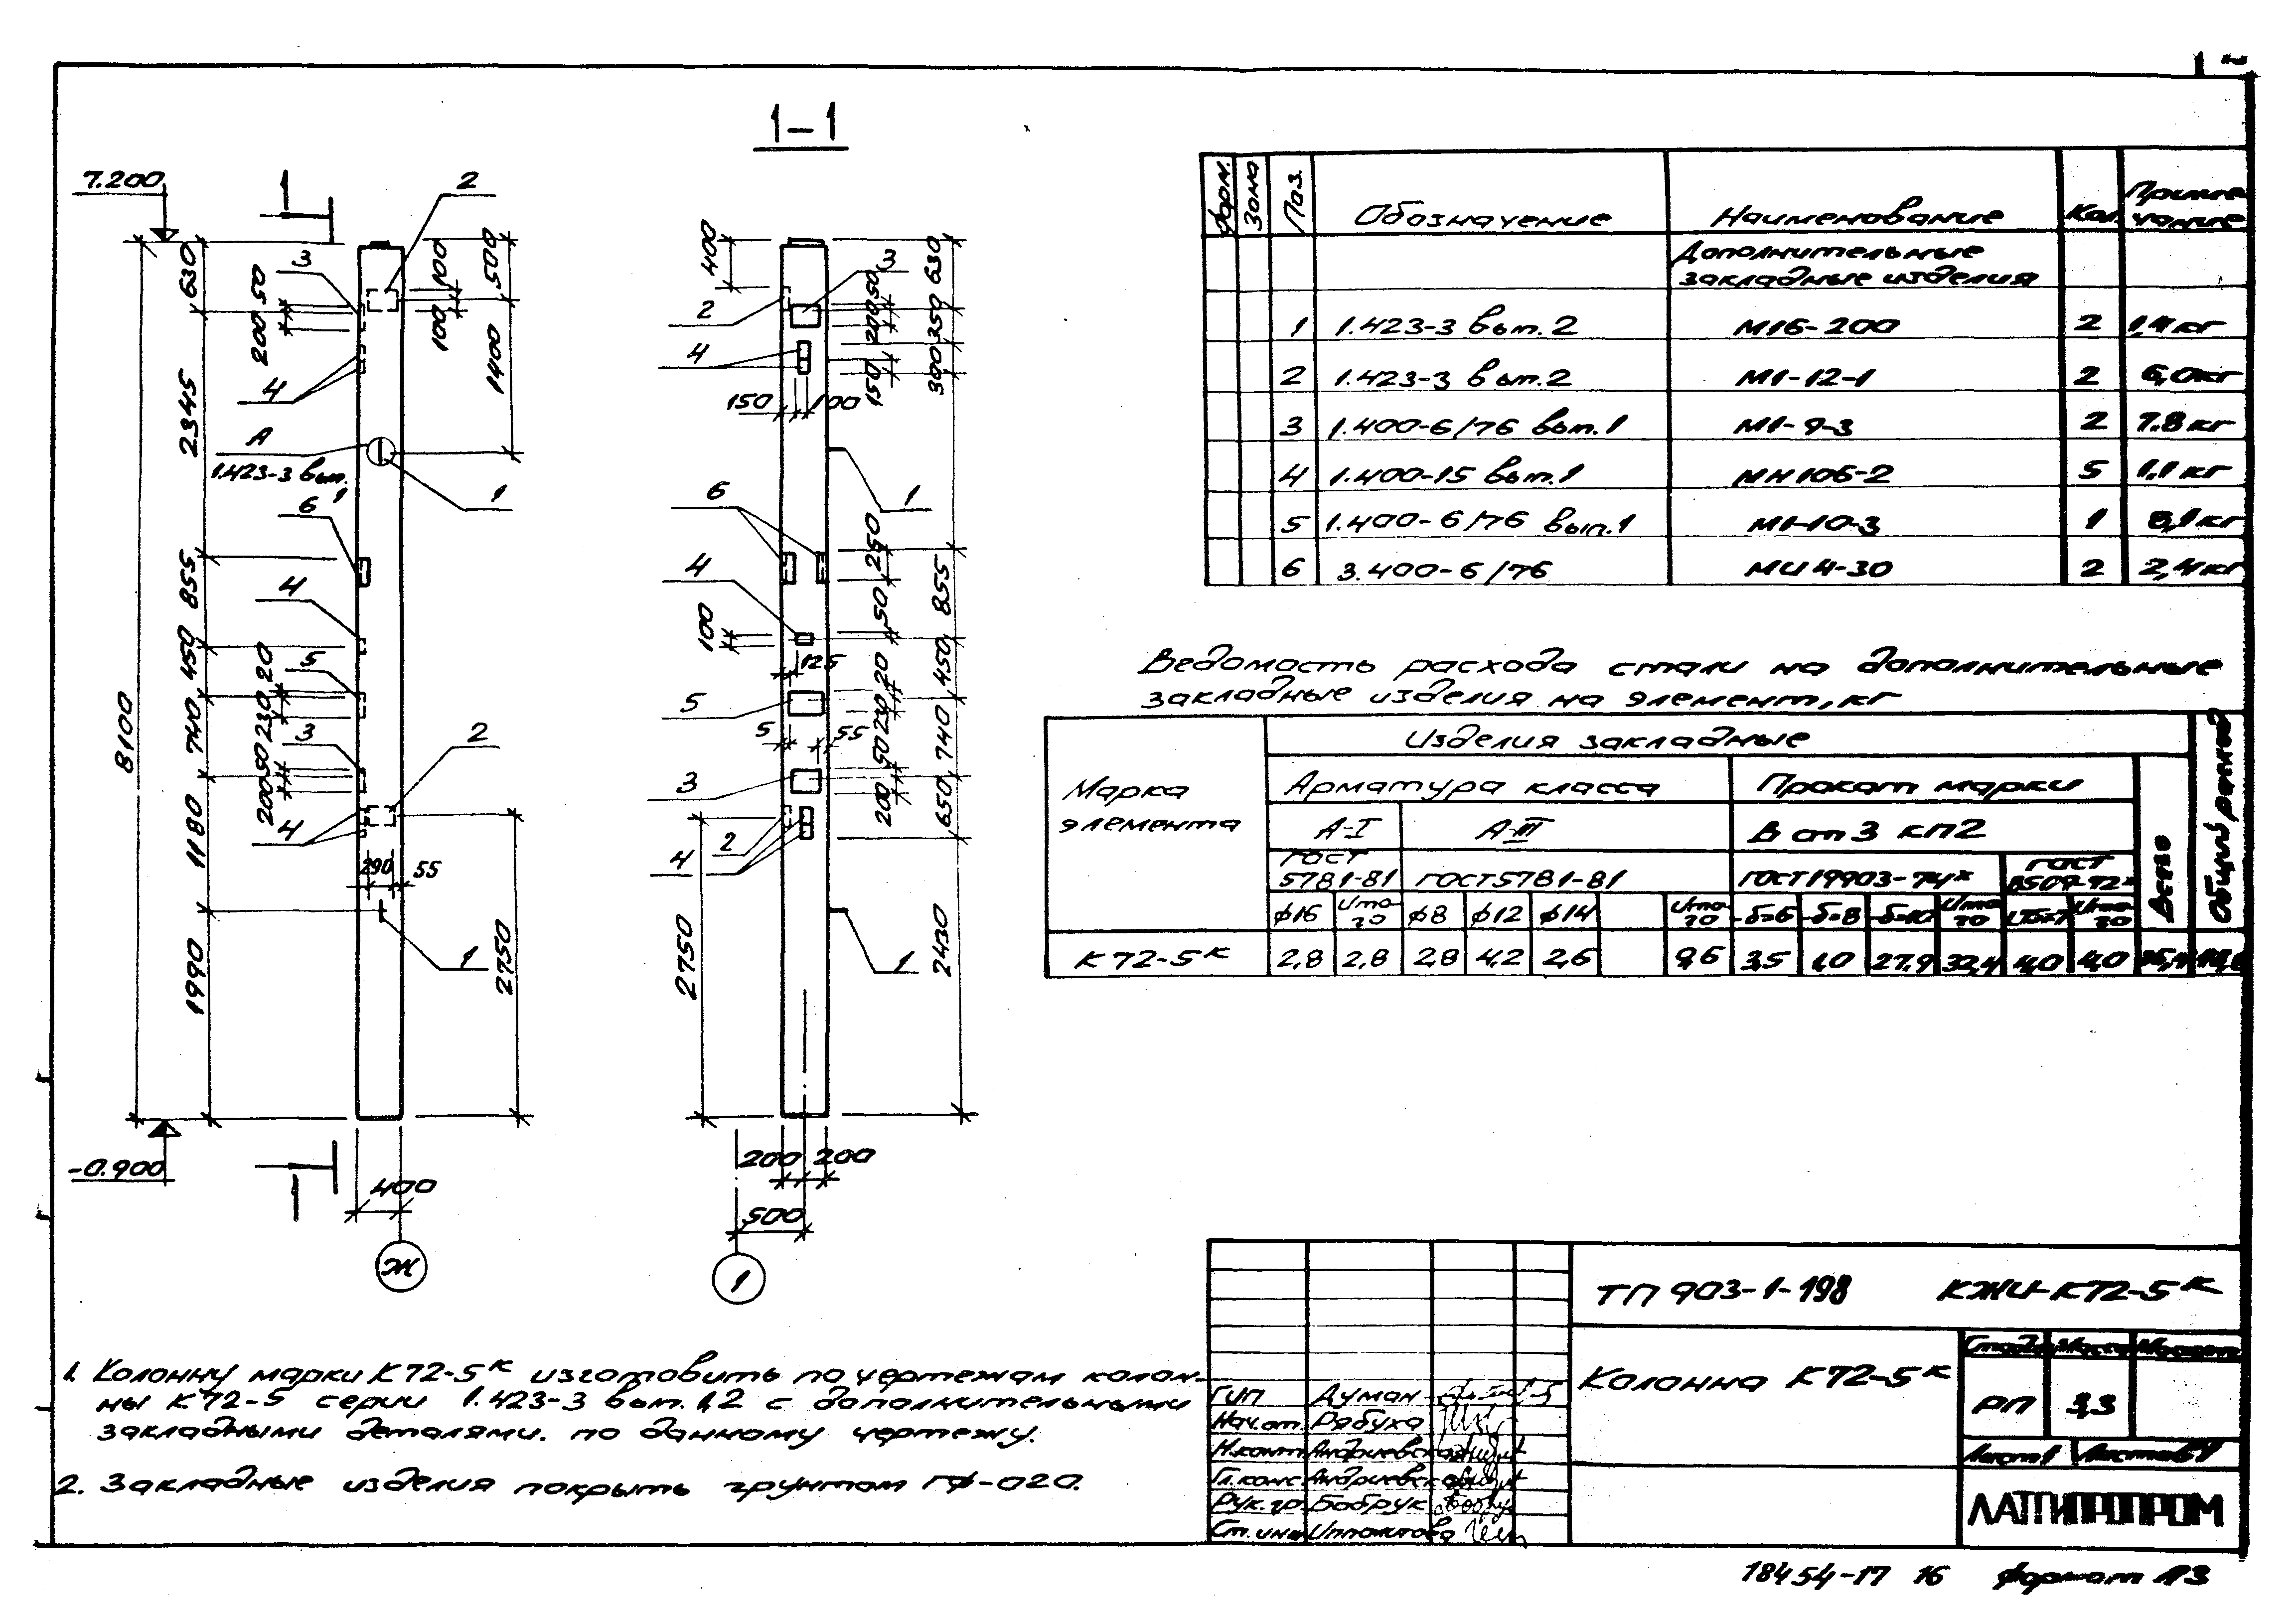 1-1
7.200
1
2
3
630
50
200
100
500
100
1400
4
2345
А
1.423-3 вып.
1
1
6
855
4
450
5
20
230
740
3
50
200
2
8100
4
1180
290
55
1
1990
2750
-0.900
1
400
Ж
400
3
630
50
200
350
2
4
300
150
150
100
1
6
250
4
50
855
100
125
20
450
5
230
5
55
740
50
3
200
650
2
4
1
2750
2430
200
200
500
1
Форм.
Зона
Поз.
Обозначение
Наименование
Кол.
Приме-
чание
Дополнительные
закладные изделия
1 1.423-3 вып.2 М16-200 2 1,4 кг
2 1.423-3 вып.2 М1-12-1 2 6,0 кг
3 1.400-6/76 вып.1 М1-9-3 2 7.8 кг
4 1.400-15 вып.1 МН106-2 5 1,1 кг
5 1.400-6/76 вып.1 М1-10-3 1 8,1 кг
6 3.400-6/76 МИ 4-30 2 2,4 кг
Ведомость расхода стали на дополнительные
закладные изделия на элемент, кг
Марка
элемента
Изделия закладные
Всего
Общий расход
Арматура класса
Прокат марки
А-I
А-III
В ст 3 кп2
ГОСТ
5781-81
ГОСТ 5781-81
ГОСТ 19903-74*
ГОСТ
8509-72*
φ16 Ито-го φ8 φ12 φ14 Ито-го -δ=6 -δ=8 -δ=10 Ито-го Ито-го
К 72-5к 2,8 2,8 2,8 4,2 2,6 9,6 3,5 1,0 27,9 32,4 4,0 4,0
1. Колонну марки К72-5к изготовить по чертежам колон-
ны К72-5 серии 1.423-3 вып. 1,2 с дополнительными
закладными деталями. по данному чертежу.
2. Закладные изделия покрыть грунтом ГФ-020.
ТП 903-1-198 КЖИ-К72-5к
Колонна К72-5к
Стадия Масса Масштаб
РП 3,3
Лист 1 Листов 1
ЛАТГИПРОПРОМ
ГИП Думан
Нач.от. Рябуха
Н.конт. Андриевская
Гл.конс Андриевск
Рук.гр. Бобрук
Ст.инж
18454-17 16 формат А3